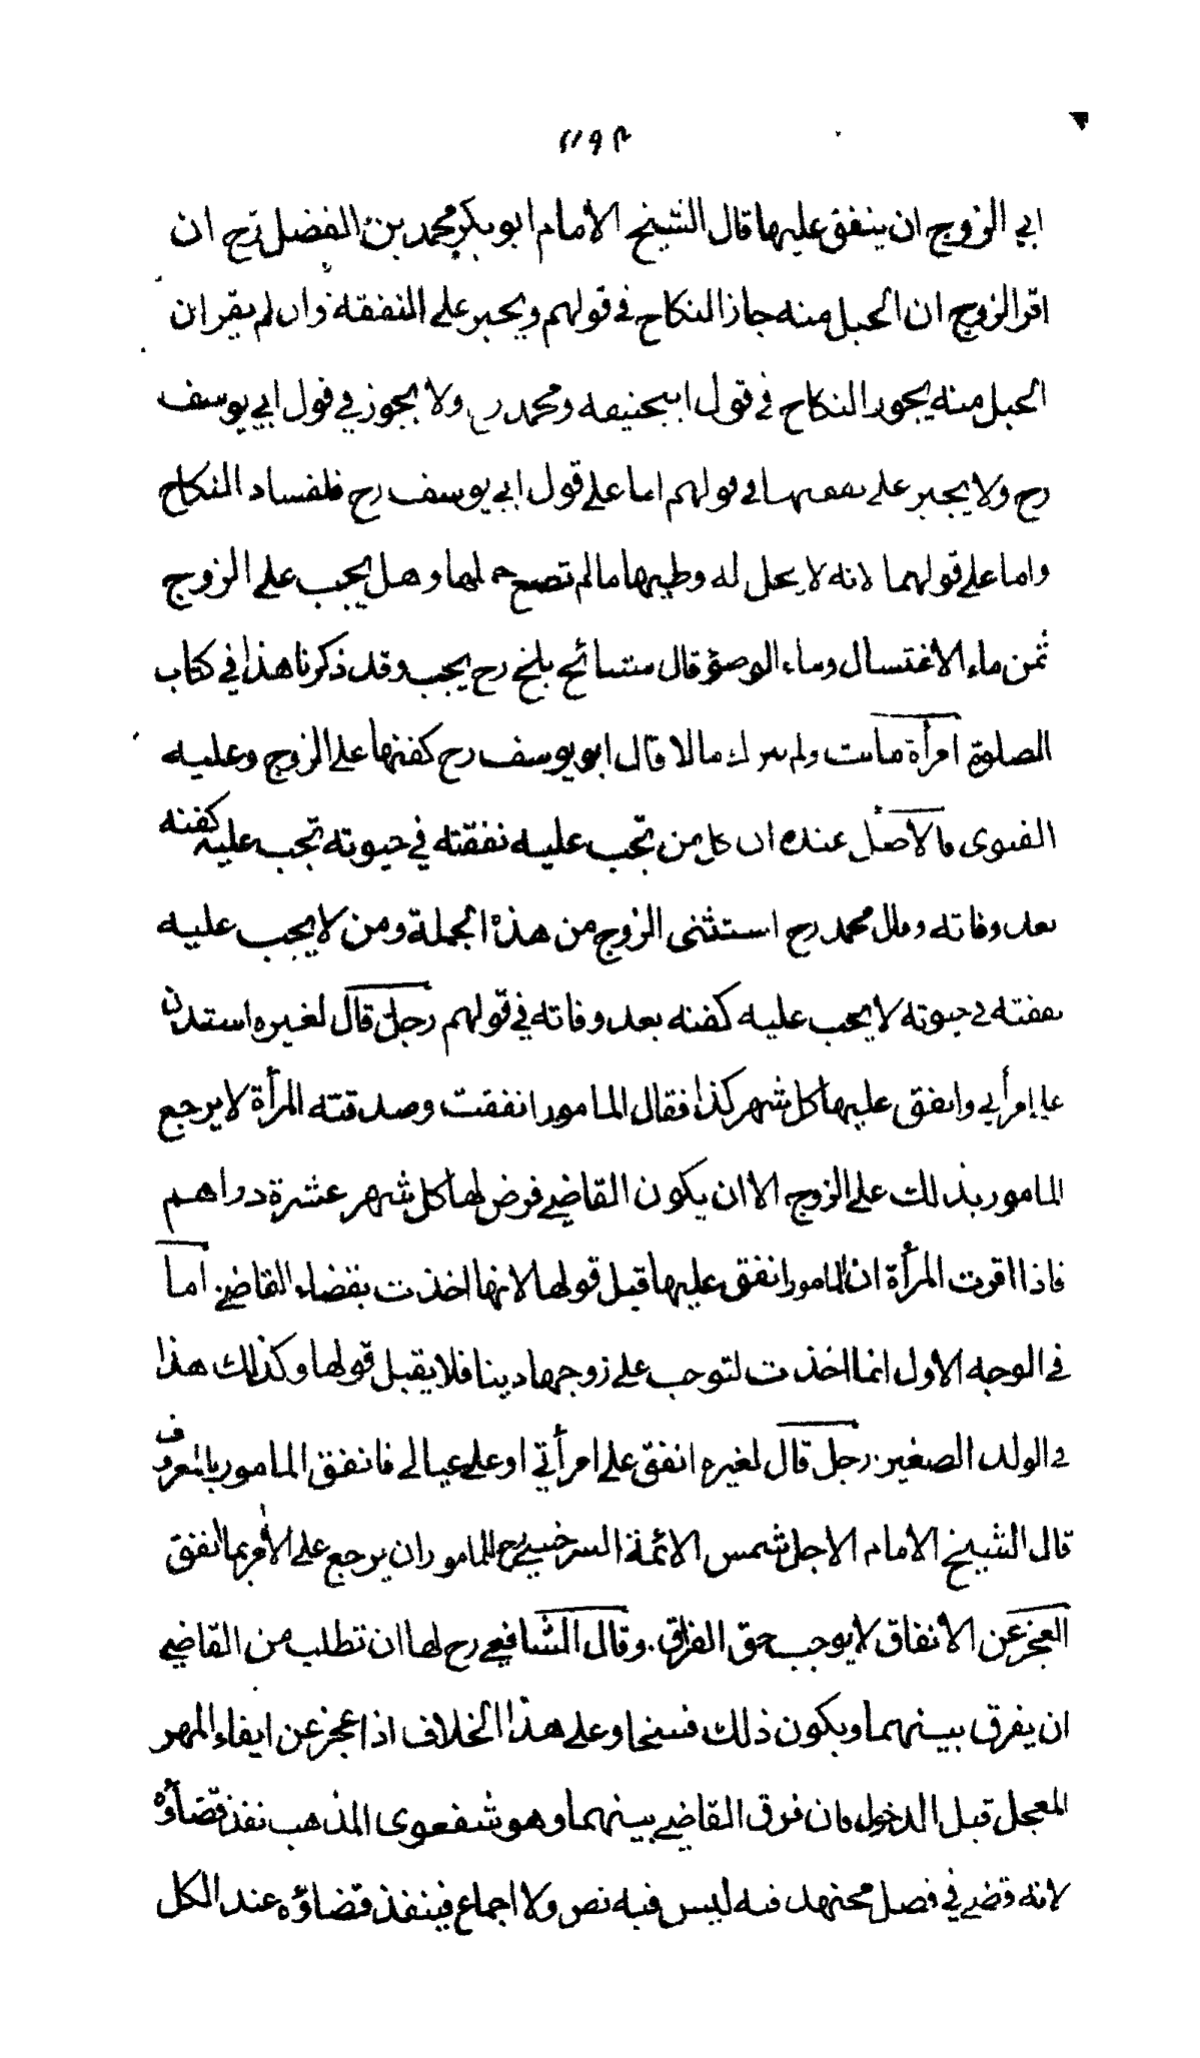 ١١٩٢
ابي الزوج ان ينفق عليها قال الشيخ الامام ابو بكر محمد بن الفضل رح ان
اقر الزوج ان الحبل منه جاز النكاح في قولهم ويجبر على النفقة وان لم يقر ان
الحبل منه يجوز النكاح في قول ابيحنيفه ومحمد رح ولا يجوز في قول ابي يوسف
رح ولا يجبر على نفقتها في قولهم اما على قول ابي يوسف رح فلفساد النكاح
واما على قولهما لانه لا يحل له وطيها ما لم تضع حملها وهل يجب على الزوج
ثمن ماء الاغتسال وماء الوضوء قال مشائخ بلخ رح يجب وقد ذكرنا هذا في كتاب
الصلوة امرأة ماتت ولم تترك مالا قال ابو يوسف رح كفنها على الزوج وعليه
الفتوى والاصل عنده ان كل من تجب عليه نفقته في حيوته تجب عليه كفنه
بعد وفاته وقال محمد رح استثنى الزوج من هذه الجملة ومن لا يجب عليه
نفقته في حيوته لا يجب عليه كفنه بعد وفاته في قولهم رجل قال لغيره استدن
على امرأتي وانفق عليها كل شهر كذا فقال المامور انفقت وصدقته المرأة لا يرجع
المامور بذلك على الزوج الا ان يكون القاضي فرض لها كل شهر عشرة دراهم
فاذا اقرت المرأة ان المامور انفق عليها قبل قولها لانها اخذت بقضاء القاضي اما
في الوجه الاول انما اخذت لتوجب على زوجها دينا فلا يقبل قولها وكذلك هذا
في الولد الصغير رجل قال لغيره انفق على امرأتي او على عيالي فانفق المامور بالمعروف
قال الشيخ الامام الاجل شمس الائمة السرخسي رح للمامور ان يرجع على الآمر بما انفق
العجز عن الانفاق لا يوجب حق الفراق وقال الشافعي رح لها ان تطلب من القاضي
ان يفرق بينهما ويكون ذلك فسخا وعلى هذا الخلاف اذا عجز عن ايفاء المهر
المعجل قبل الدخول فان فرق القاضي بينهما وهو شفعوى المذهب نفذ قضاؤه
لانه قضي في فصل مجتهد فيه ليس فيه نص ولا اجماع فينفذ قضاؤه عند الكل